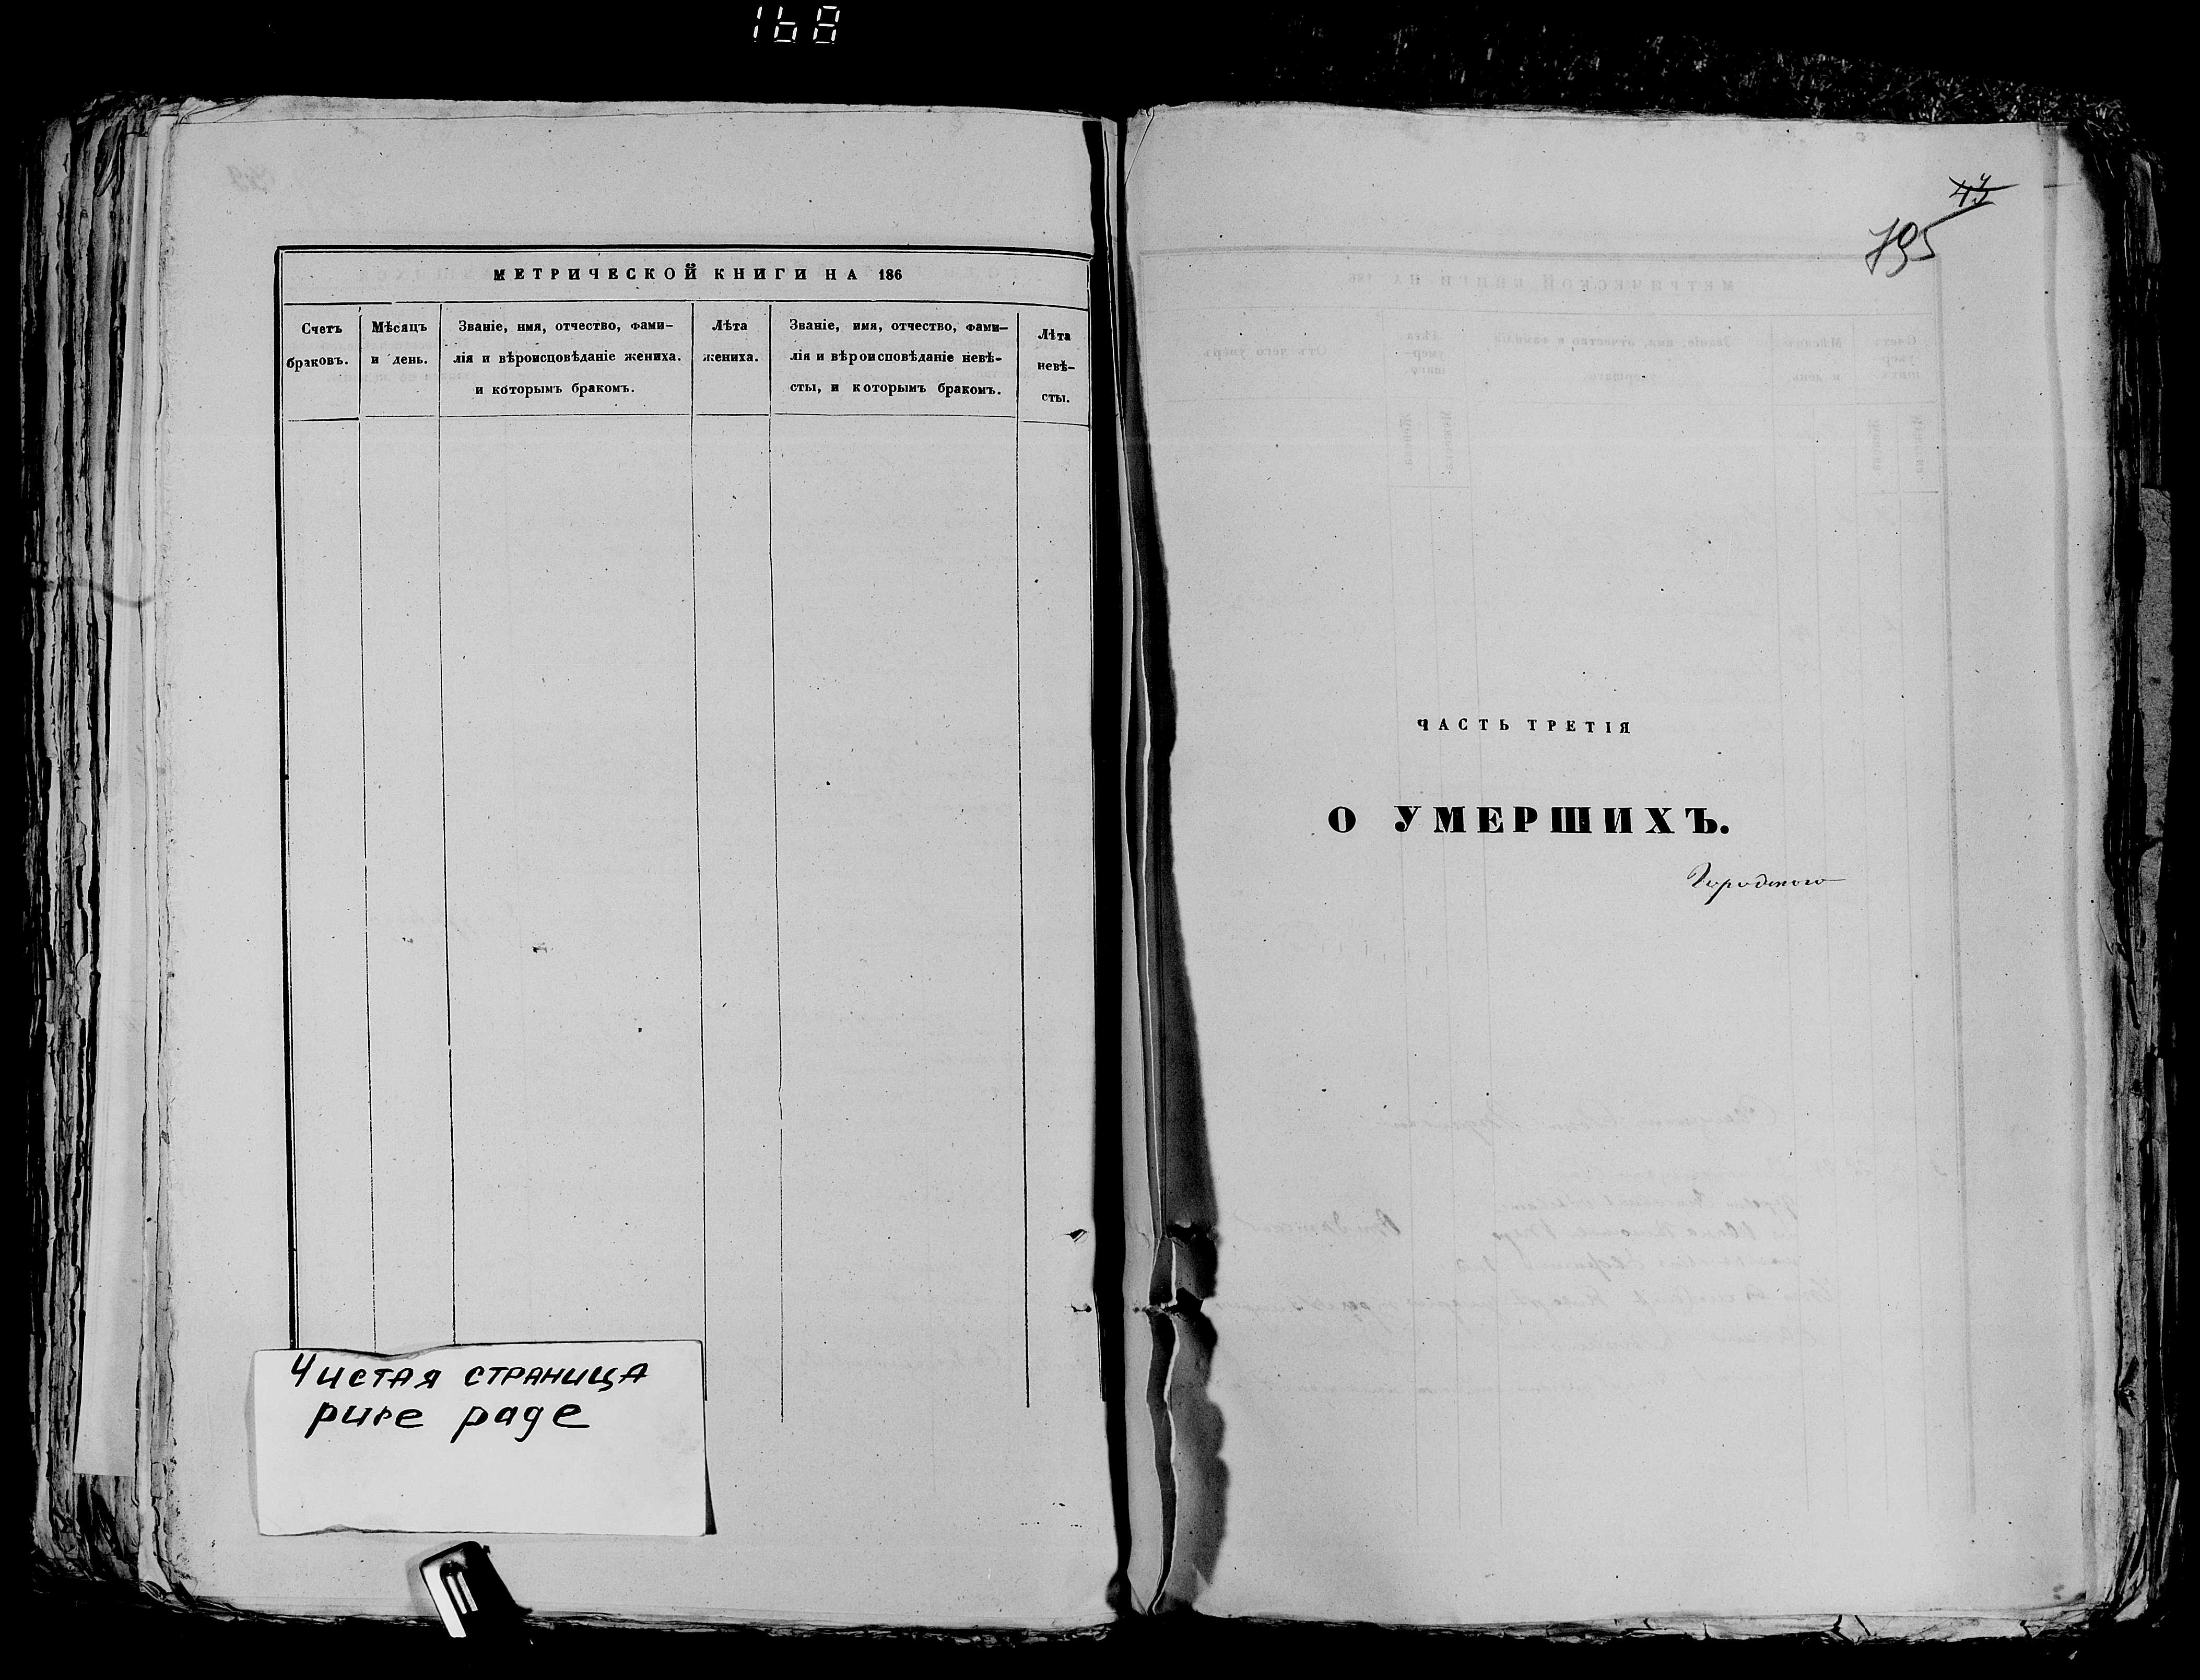 168
МЕТРИЧЕСКОЙ КНИГИ НА 186
Счетъ
браковъ.
Мѣсяцъ
и день.
Званіе, имя, отчество, фами-
лія и вѣроисповѣданіе жениха.
и которымъ бракомъ.
Лѣта
жениха.
Званіе, имя, отчество, фами-
лія и вѣроисповѣданіе невѣ-
сты, и которымъ бракомъ.
Лѣта
невѣ-
сты.
Чистая страница
pure page
795
ЧАСТЬ ТРЕТІЯ
О УМЕРШИХЪ.
Городскаго